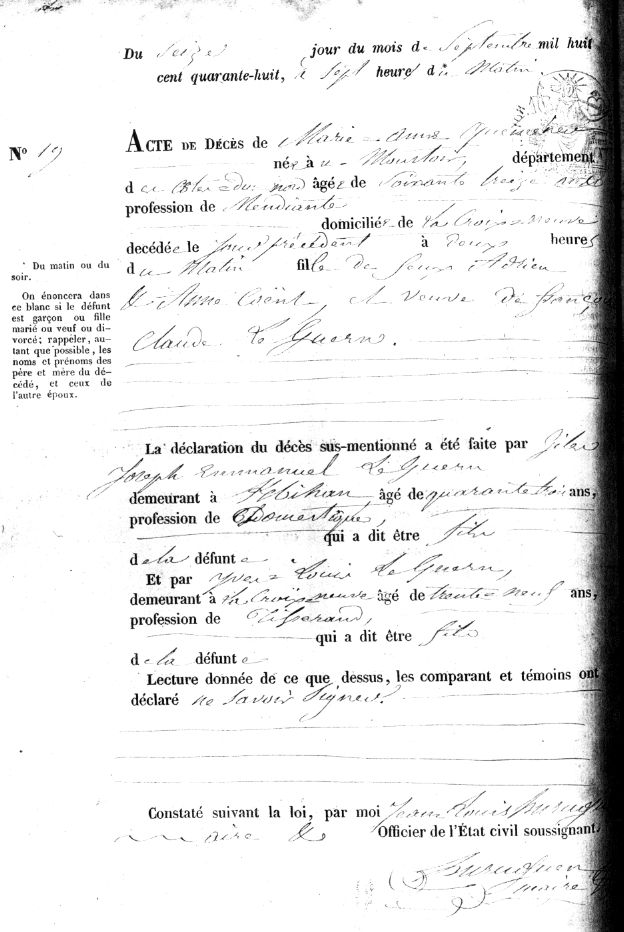 Du Seize jour du mois de Septembre mil huit
cent quarante-huit, à Sept heures du Matin.
No 19
ACTE DE DÉCÈS de Marie-Anne
née à u Moustoir, département
d es Côtes du nord âgée de Soixante treize ans
profession de Mendiante
domiciliée de la Croix neuve
decédée le jour précédent à deux heures
du Matin fille de feux Adrien
& Anne et veuve de
Claude Le Guern.
* Du matin ou du
soir.
On énoncera dans
ce blanc si le défunt
est garçon ou fille
marié ou veuf ou di-
vorcé; rappeler, au-
tant que possible, les
noms et prénoms des
père et mère du dé-
cédé, et ceux de
l'autre époux.
La déclaration du décès sus-mentionné a été faite par
Joseph Emmanuel Le Guern
demeurant à âgé de quarante trois ans,
profession de Domestique,
qui a dit être fils
de la défunte
Et par Yves-Louis Le Guern,
demeurant à la Croix neuve âgé de trente-neuf ans,
profession de Tisserand,
qui a dit être fils
de la défunte
Lecture donnée de ce que dessus, les comparant et témoins ont
déclaré ne savoir Signer.
Constaté suivant la loi, par moi Jean Louis
maire & Officier de l'État civil soussignant
maire